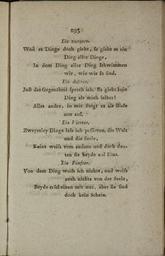 295
Ein zweyter.
Weil es Dinge doch giebt, so giebt es ein
Ding aller Dinge,
In dem Ding aller Ding schwimmen
wir, wie wir so sind.
Ein dritter.
Just das Gegentheil sprech ich. Es giebt kein
Ding als mich selbst!
Alles andre, in mir steigt es als Blase
nur auf.
Ein Vierter.
Zweyerley Dinge lass ich passiren, die Welt
und die Seele,
Keins weiss vom andern und doch deu-
ten sie beyde auf Eins.
Ein Fünfter.
Von dem Ding weiss ich nichts, und weiss
auch nichts von der Seele,
Beyde erscheinen mir nur, aber sie sind
doch kein Schein.